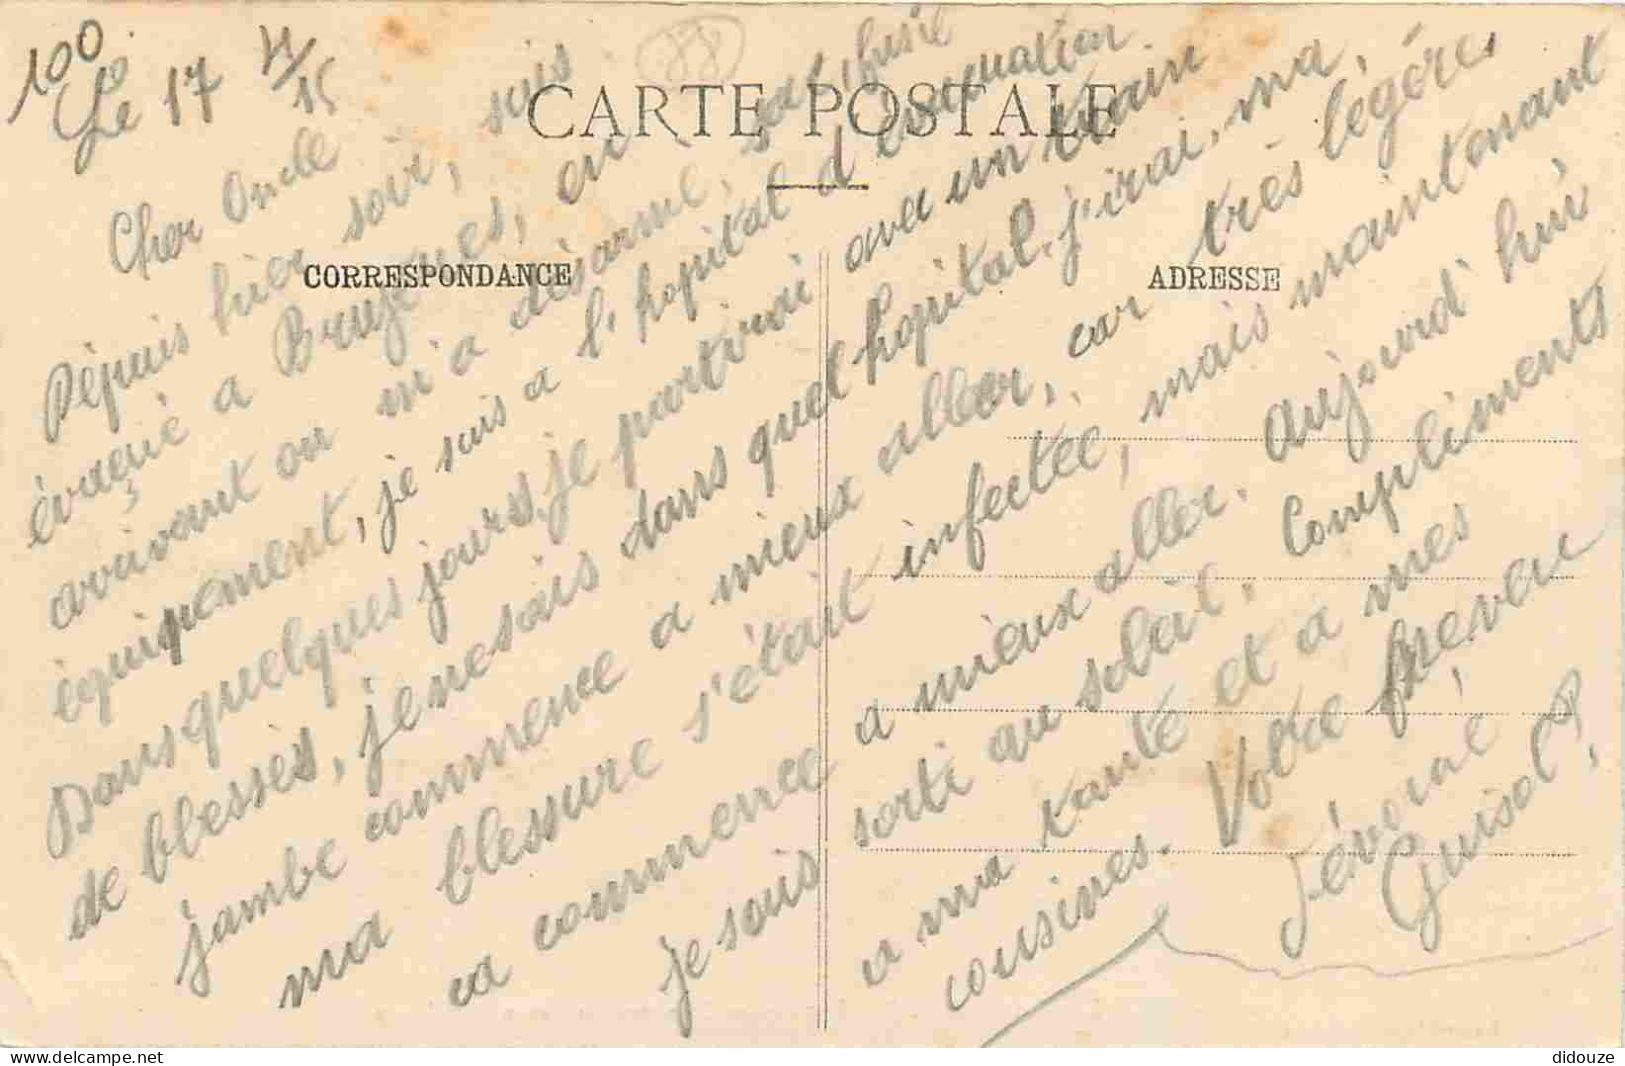 100
Le 17 4/15
Cher Oncle
CARTE POSTALE
CORRESPONDANCE
ADRESSE
88
Dépuis hier soir, suis
évacué a Bruyères, en
arrivant on m'a désarmé, sac, fusil
équipement, je suis a l'hopital d'évacuation
Dans quelques jours, je partirai avec un train
de blessés, je ne sais dans quel hopital j'irai, ma
jambe commence a mieux aller, car très légère,
ma blessure s'était infectée, mais maintenant
ca commence a mieux aller. aujourd'hui
je suis sorti au soleil. Compliments
a ma tante et a mes
cousines. Votre neveu
Guisol
didouze